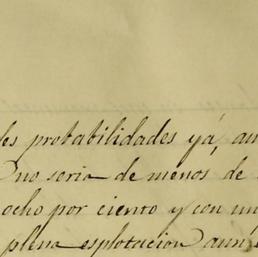 les probabilidades ya, au
no seria de menos de
ocho por ciento y con un
plena esplotacion aun